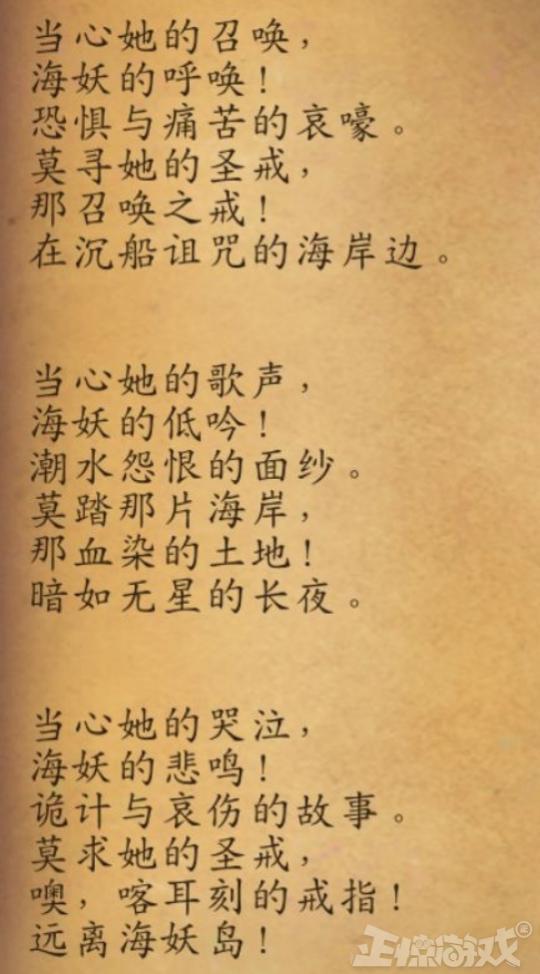 当心她的召唤，
海妖的呼唤！
恐惧与痛苦的哀嚎。
莫寻她的圣戒，
那召唤之戒！
在沉船诅咒的海岸边。
当心她的歌声，
海妖的低吟！
潮水怨恨的面纱。
莫踏那片海岸，
那血染的土地！
暗如无星的长夜。
当心她的哭泣，
海妖的悲鸣！
诡计与哀伤的故事。
莫求她的圣戒，
噢，喀耳刻的戒指！
远离海妖岛！
正惊游戏